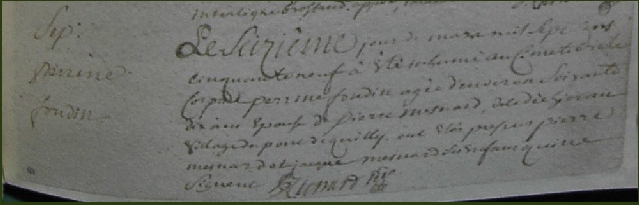 Sep:
perrine
foudin
Le Seizième jour de mars mil sept cens
cinquante neuf à été inhumé au Cimetiere le
corps de perrine foudin agée d'environ Soixante
dix ans Epouse de pierre mesnard, decedée hier au
village de pont diquilly, ont étés presens pierre
mesnard et jacque mesnard Ses fils qui ne
Signent